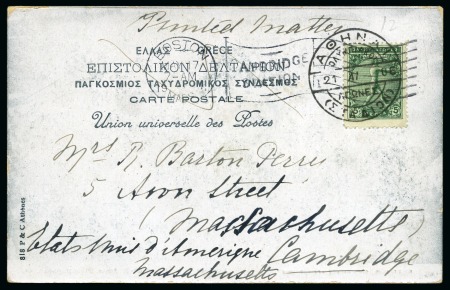 Printed Matter
12
ΕΛΛΑΣ GRECE
ΕΠΙΣΤΟΛΙΚΟΝ ΔΕΛΤΑΡΙΟΝ
ΠΑΓΚΟΣΜΙΟΣ ΤΑΧΥΔΡΟΜΙΚΟΣ ΣΥΝΔΕΣΜΟΣ
CARTE POSTALE
Union universelle des Postes
BOSTON
7-AM
CAMBRIDGE
STATION
ΑΘΗΝΑΙ
21 06
Mrs R. Barton Perry
5 Avon Street
Massachusetts
Etats Unis d'Amerique Cambridge
Massachusetts
818 P & C Athènes